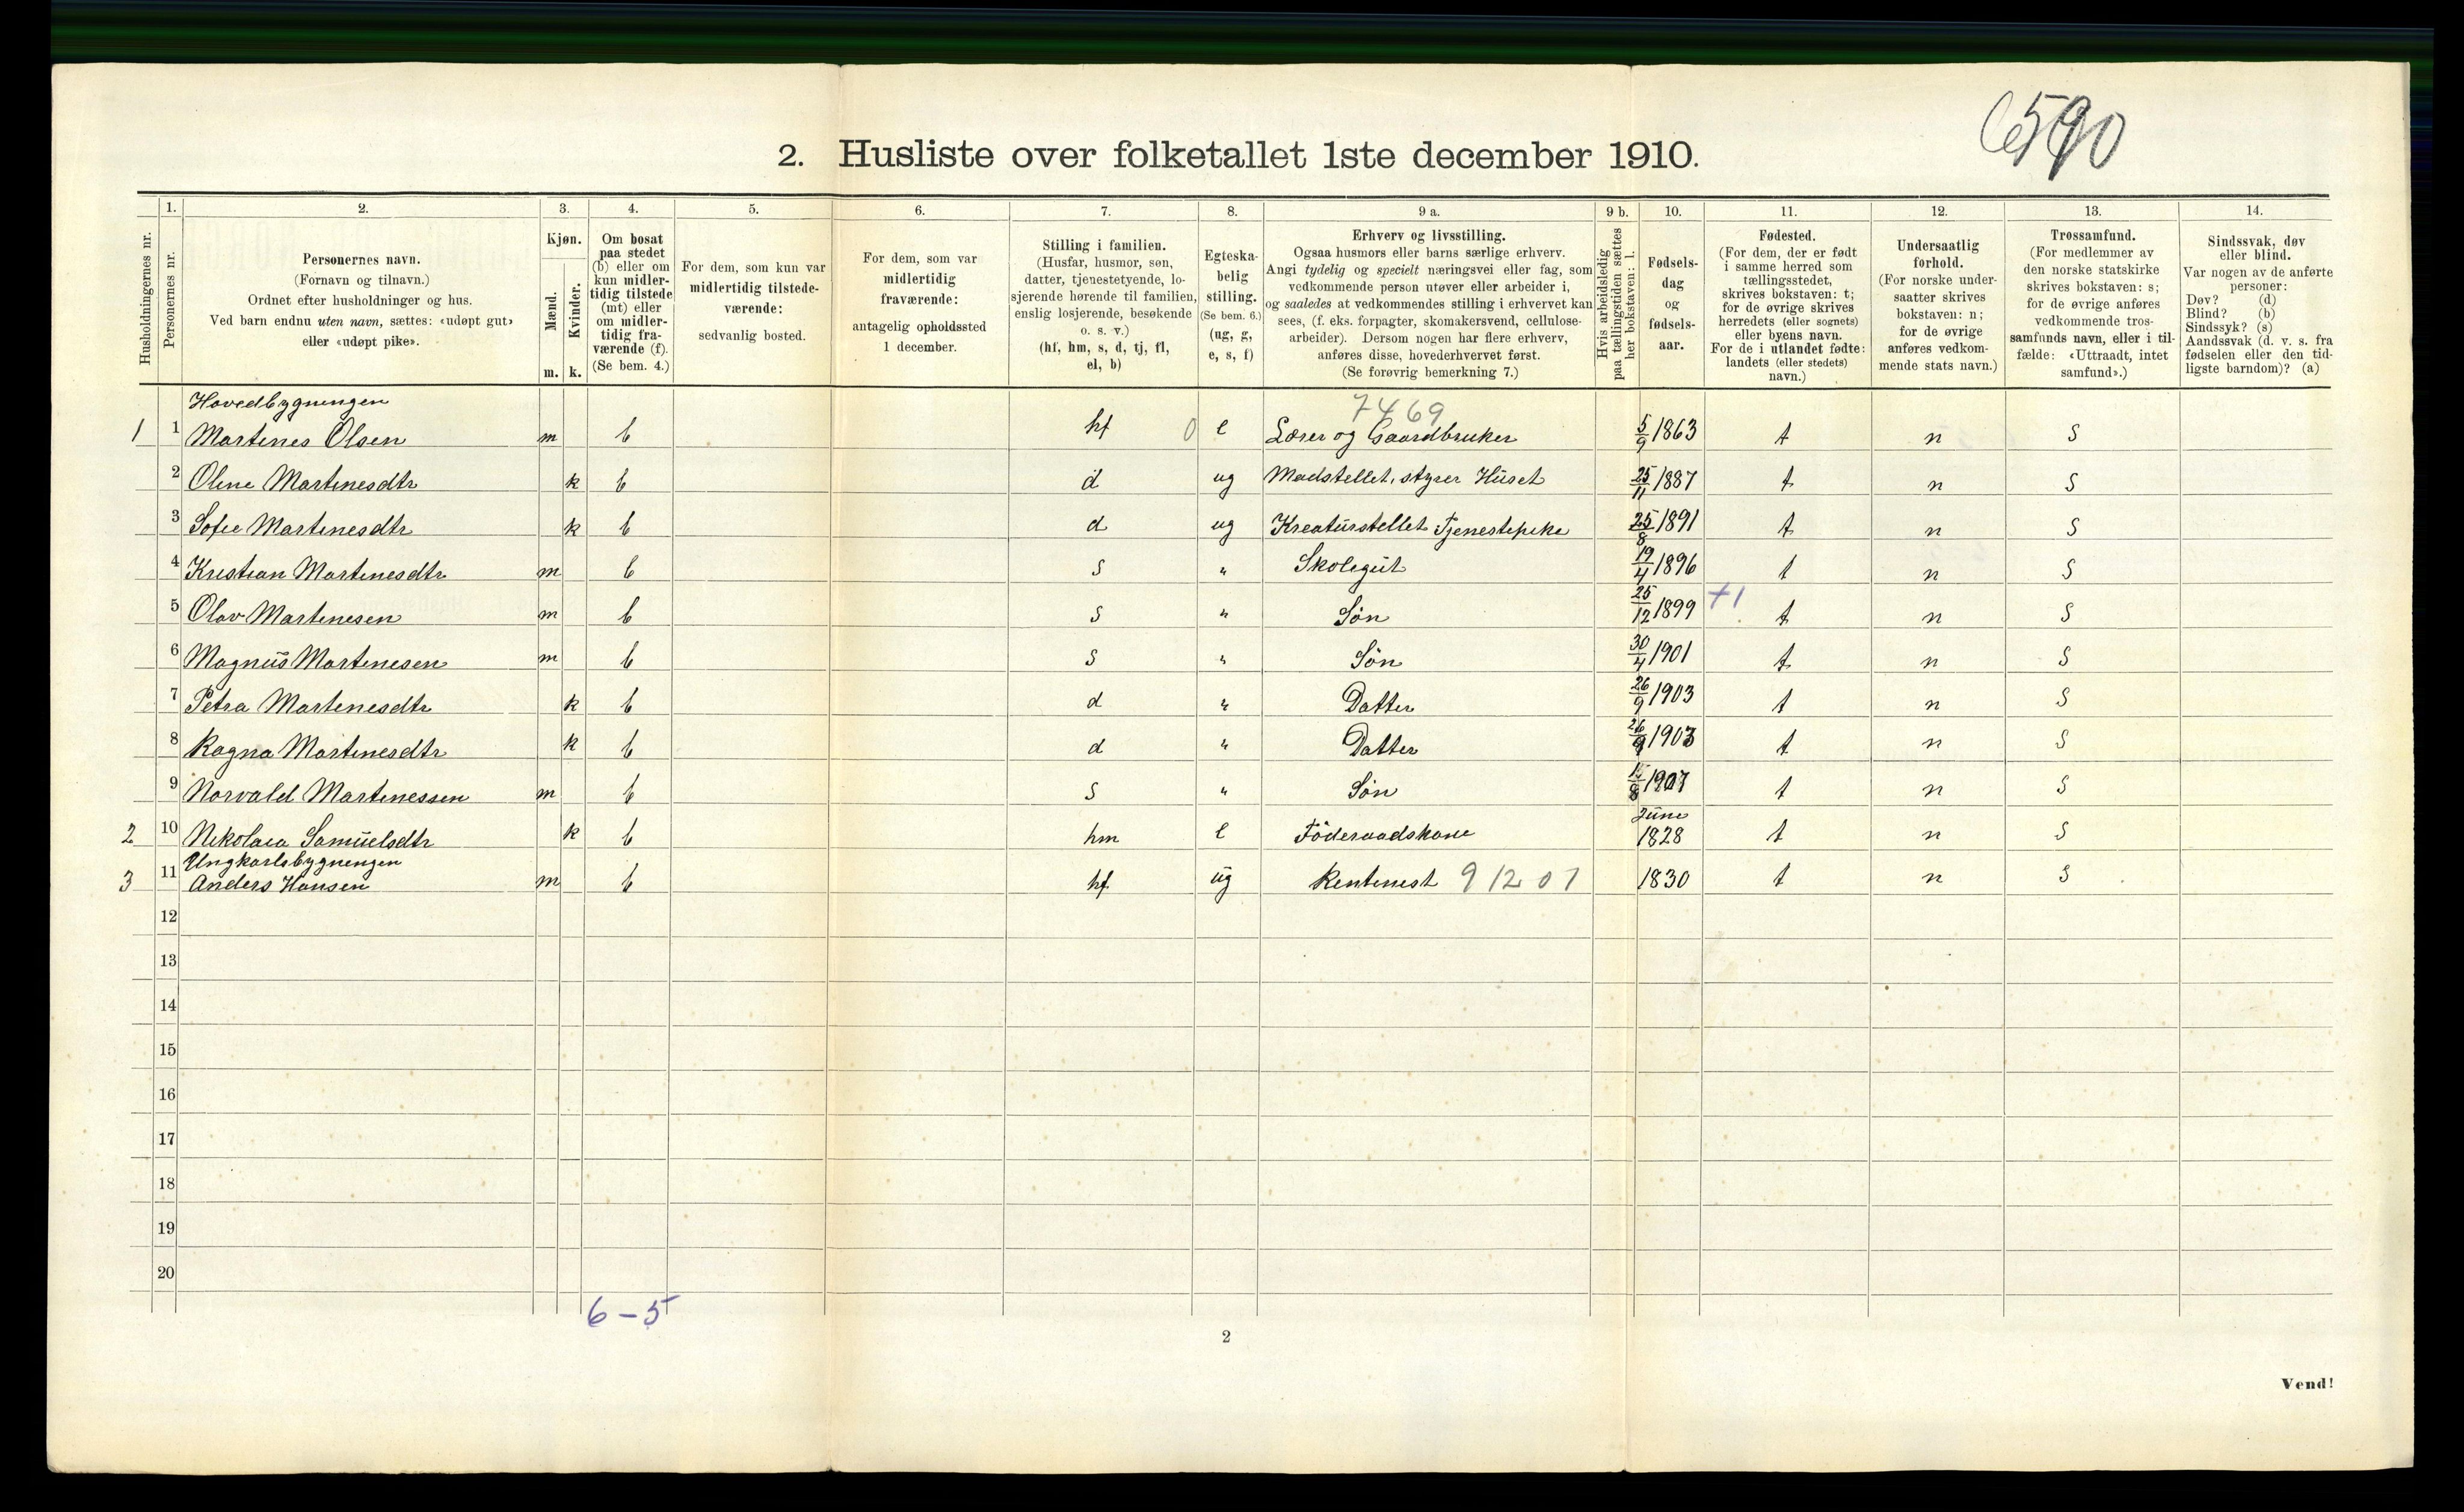 590
2. Husliste over folketallet 1ste december 1910.
Husholdningernes nr.
1.
Personernes nr.
2.
Personernes navn.
(Fornavn og tilnavn.)
Ordnet efter husholdninger og hus.
Ved barn endnu uten navn, sættes: «udøpt gut»
eller «udøpt pike».
3.
Kjøn.
Mænd.
Kvinder.
m. k.
4.
Om bosat
paa stedet
(b) eller om
kun midler-
tidig tilstede
(mt) eller
om midler-
tidig fra-
værende (f).
(Se bem. 4.)
5.
For dem, som kun var
midlertidig tilstede-
værende:
sedvanlig bosted.
6.
For dem, som var
midlertidig
fraværende:
antagelig opholdssted
1 december.
7.
Stilling i familien.
(Husfar, husmor, søn,
datter, tjenestetyende, lo-
sjerende hørende til familien,
enslig losjerende, besøkende
o. s. v.)
(hf, hm, s, d, tj, fl,
el, b)
8.
Egteska-
belig
stilling.
(Se bem. 6.)
(ug, g,
e, s, f)
9 a.
Erhverv og livsstilling.
Ogsaa husmors eller barns særlige erhverv.
Angi tydelig og specielt næringsvei eller fag, som
vedkommende person utøver eller arbeider i,
og saaledes at vedkommendes stilling i erhvervet kan
sees, (f. eks. forpagter, skomakersvend, cellulose-
arbeider). Dersom nogen har flere erhverv,
anføres disse, hovederhvervet først.
(Se forøvrig bemerkning 7.)
9 b.
Hvis arbeidsledig
paa tællingstiden sættes
her bokstaven: l.
10.
Fødsels-
dag
og
fødsels-
aar.
11.
Fødested.
(For dem, der er født
i samme herred som
tællingsstedet,
skrives bokstaven: t;
for de øvrige skrives
herredets (eller sognets)
eller byens navn.
For de i utlandet fødte:
landets (eller stedets)
navn.)
12.
Undersaatlig
forhold.
(For norske under-
saatter skrives
bokstaven: n;
for de øvrige
anføres vedkom-
mende stats navn.)
13.
Trossamfund.
(For medlemmer av
den norske statskirke
skrives bokstaven: s;
for de øvrige anføres
vedkommende tros-
samfunds navn, eller i til-
fælde: «Uttraadt, intet
samfund».)
14.
Sindssvak, døv
eller blind.
Var nogen av de anførte
personer:
Døv? (d)
Blind? (b)
Sindssyk? (s)
Aandssvak (d. v. s. fra
fødselen eller den tid-
ligste barndom)? (a)
Hovedbygningen 7469
1 1 Martines Olsen m b hf 0 e Lærer og Gaardbruker 5/9 1863 t n S
2 Oline Martinesdtr k b d ug Madstellet, styrer Huset 25/11 1887 t n S
3 Sofie Martinesdtr k b d ug Kreaturstellet Tjenestepike 25/8 1891 t n S
4 Kristian Martinesdtr m b S " Skolegut 19/4 1896 t n S
5 Olav Martinesen m b S " Søn 25/12 1899 +1 t n S
6 Magnus Martinesen m b S " Søn 30/4 1901 t n S
7 Petra Martinesdtr k b d " Datter 26/9 1903 t n S
8 Ragna Martinesdtr k b d " Datter 26/9 1903 t n S
9 Norvald Martinessen m b S " Søn 1907 t n S
2 10 Nikolaia Samuelsdtr k b hm e Föderaadskone June 1828 t n S
Ungkarlsbygningen
3 11 Anders Hansen m b hf. ug Rentenist 91201 1830 t n S
12
13
14
15
16
17
18
19
20
6-5
2
Vend!